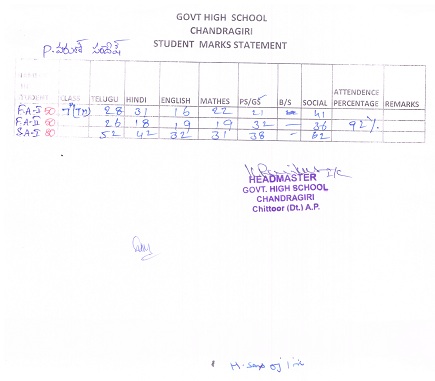 GOVT HIGH SCHOOL
CHANDRAGIRI
STUDENT MARKS STATEMENT
P.
STUDENT CLASS TELUGU HINDI ENGLISH MATHES PS/GS B/S SOCIAL ATTENDENCE PERCENTAGE REMARKS
F.A-I 50 7 28 31 16 22 21 41
F.A-II 50 26 18 19 19 32 - 36 92%
S.A-I 80 52 42 32 31 38 - 62
I/C
HEADMASTER
GOVT. HIGH SCHOOL
CHANDRAGIRI
Chittoor (Dt.) A.P.